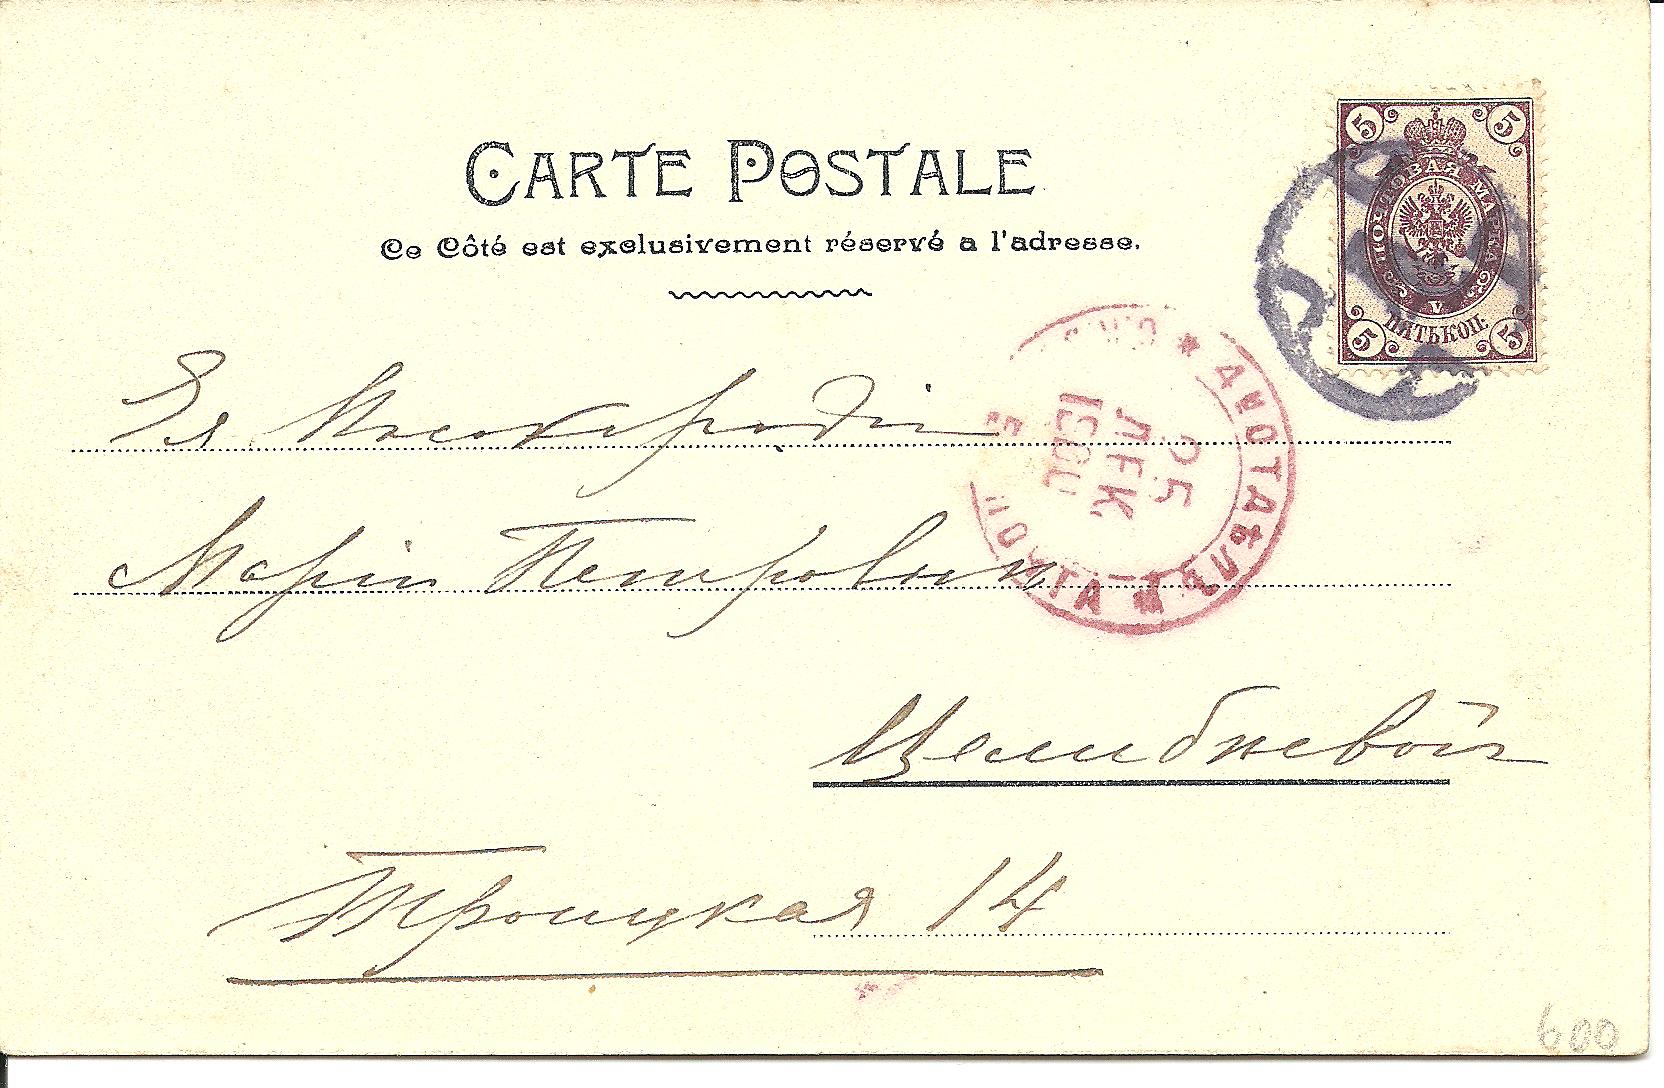 CARTE POSTALE
Ce Côté est exclusivement réservé a l'adresse.
5 5
ПОЧТОВАЯ МАРКА
V
ПЯТЬ КОП.
5 5
* 4 ПОЧТ. ОТДѢЛ. * ПОЧТА
25
ДЕК.
Ея
Маріи Петровнѣ
Троицкая 14
600